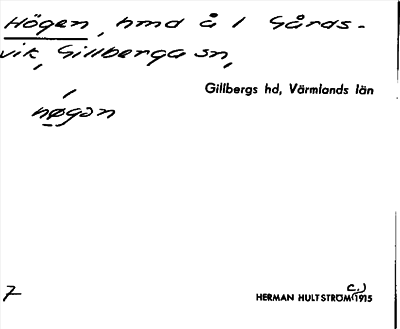 Högen, hmd å 1 Gårds-
vik, Gillberga sn,
Gillbergs hd, Värmlands län
høgən
7
HERMAN HULTSTRÖM (c.) 1915